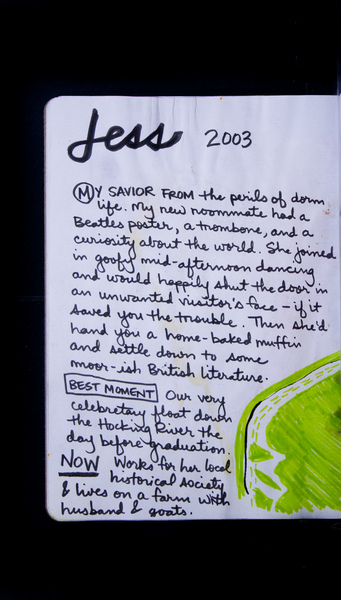 Jess 2003
MY SAVIOR FROM the perils of dorm
life. My new roommate had a
Beatles poster, a trombone, and a
curiosity about the world. She joined
in goofy mid-afternoon dancing
and would happily shut the door in
an unwanted visitor's face – if it
saved you the trouble. Then she'd
hand you a home-baked muffin
and settle down to some
moor-ish British literature.
BEST MOMENT Our very
celebratory float down
the Hocking River the
day before graduation.
NOW Works for her local
historical society
& lives on a farm with
husband & goats.